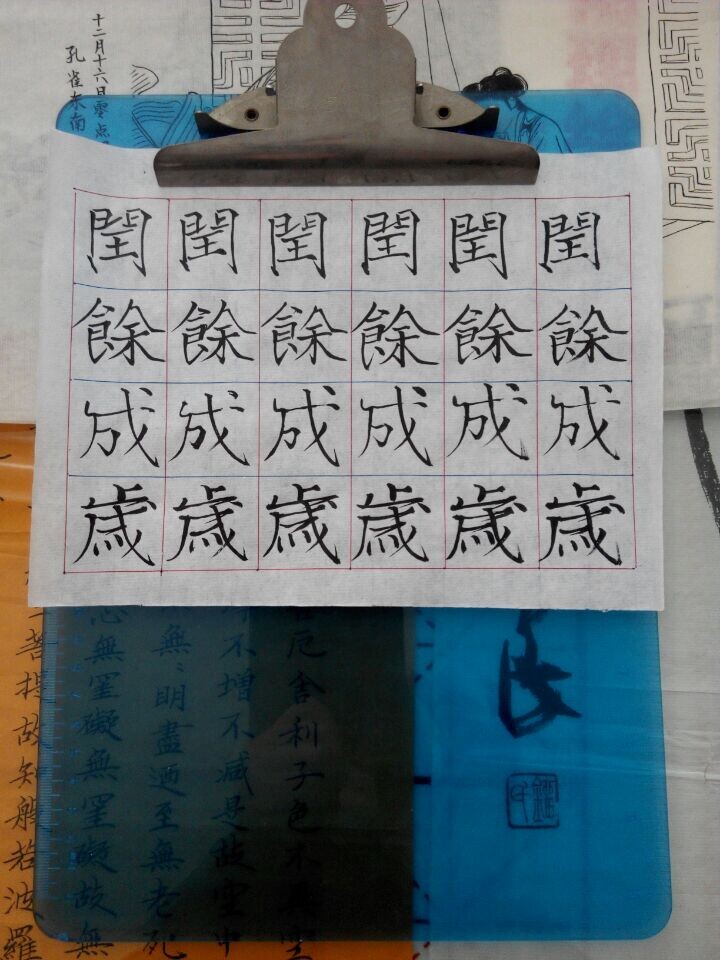 十二月十六日零点
孔雀东南
閏 閏 閏 閏 閏 閏
餘 餘 餘 餘 餘 餘
成 成 成 成 成 成
歲 歲 歲 歲 歲 歲
厄舍利子色不異空
不增不減是故空中
無〻明盡迺至無老死
心無罣礙無罣礙故無
菩提故知般若波羅